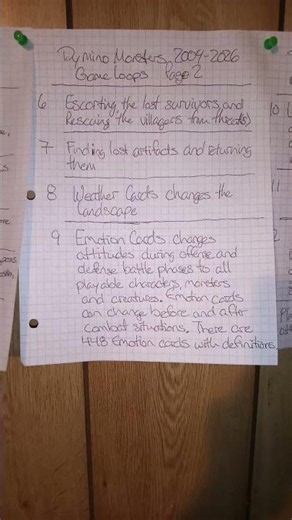 Dymino Monsters, 2009-2026
Game Loops Page 2
6 Escorting the lost survivors and
Rescuing the villagers thru threats)
7 Finding lost artifacts and returning
them
8 Weather Cards changes the
Landscape
9 Emotion Cards changes
attitudes during offense and
defense battle phases to all
playable characters, monsters
and creatures. Emotion cards
can change before and after
combat situations. There are
448 Emotion cards with definitions.
10
11